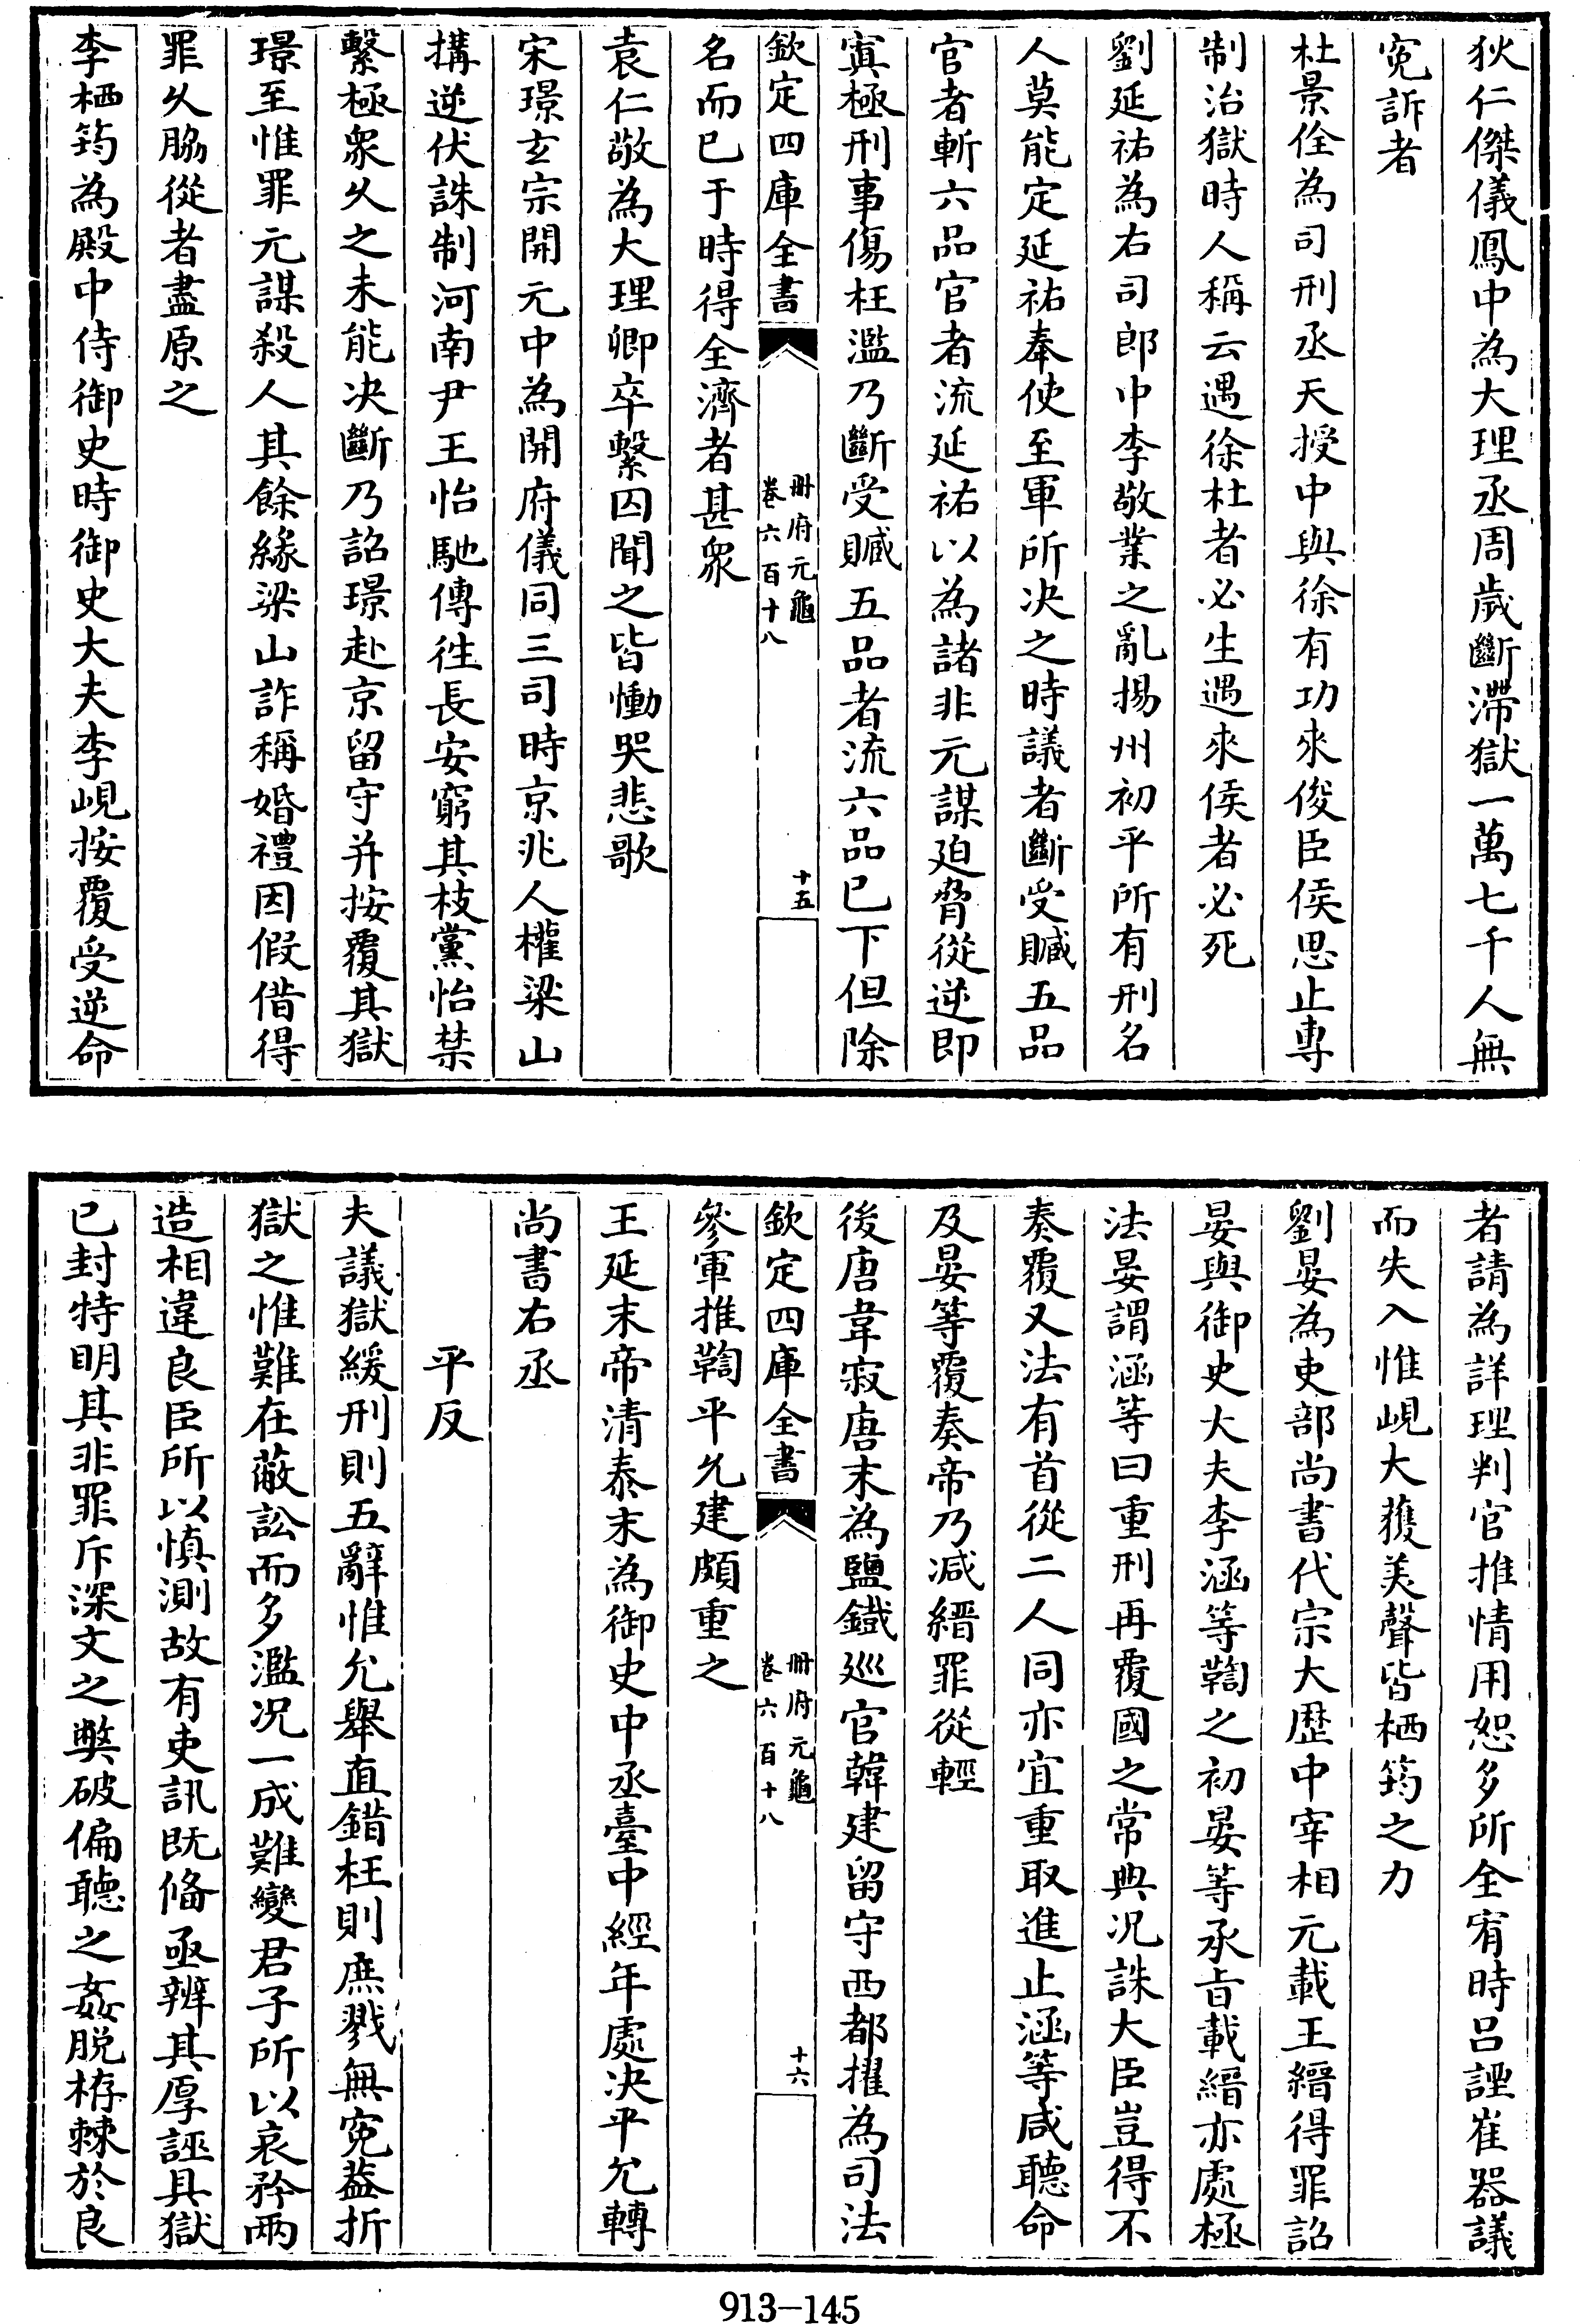 狄仁傑儀鳳中為大理丞周歲斷滯獄一萬七千人無
寃訴者
杜景佺為司刑丞天授中與徐有功來俊臣侯思止専
制治獄時人稱云遇徐杜者必生遇來侯者必死
劉延祐為右司郎中李敬業之亂揚州初平所有刑名
人莫能定延祐奉使至軍所决之時議者斷受贓五品
官者斬六品官者流延祐以為諸非元謀廹脅從逆即
寘極刑事傷枉濫乃斷受贓五品者流六品已下但除
欽定四庫全書
冊府元龜
卷六百十八
十五
名而已于時得全濟者甚衆
袁仁敬為大理卿卒繫囚聞之皆慟哭悲歌
宋璟玄宗開元中為開府儀同三司時京兆人權梁山
搆逆伏誅制河南尹王怡馳傳徃長安窮其枝黨怡禁
繫極衆乆之未能决斷乃詔璟赴京留守并按覆其獄
璟至惟罪元謀殺人其餘緣梁山詐稱婚禮因假借得
罪乆脇從者盡原之
李栖筠為殿中侍御史時御史大夫李峴按覆受逆命
者請為詳理判官推情用恕多所全宥時吕諲崔器議
而失入惟峴大獲美聲皆栖筠之力
劉晏為吏部尚書代宗大歴中宰相元載王縉得罪詔
晏與御史大夫李涵等鞫之初晏等承旨載縉亦處極
法晏謂涵等曰重刑再覆國之常典况誅大臣豈得不
奏覆又法有首從二人同亦宜重取進止涵等咸聽命
及晏等覆奏帝乃减縉罪從輕
後唐韋寂唐末為鹽鐡廵官韓建留守西都擢為司法
欽定四庫全書
冊府元龜
卷六百十八
十六
參軍推鞫平允建頗重之
王延末帝清泰末為御史中丞臺中經年處决平允轉
尚書右丞
平反
夫議獄緩刑則五辭惟允舉直錯枉則庶戮無寃葢折
獄之惟難在蔽訟而多濫况一成難變君子所以哀矜兩
造相違良臣所以慎測故有吏訊既俻亟辨其厚誣具獄
已封特明其非罪斥深文之獘破偏聽之姦脱栫棘於良
913-145